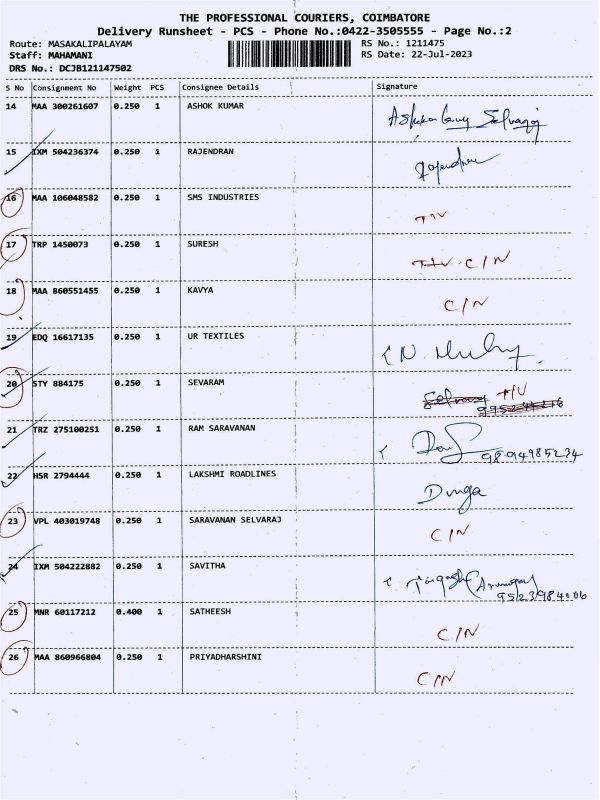 THE PROFESSIONAL COURIERS, COIMBATORE
Delivery Runsheet - PCS - Phone No.:0422-3505555 - Page No.:2
Route: MASAKALIPALAYAM RS No.: 1211475
Staff: MAHAMANI RS Date: 22-Jul-2023
DRS No.: DCJB121147502
S No Consignment No Weight PCS Consignee Details Signature
14 MAA 300261607 0.250 1 ASHOK KUMAR
15 IXM 504236374 0.250 1 RAJENDRAN Rajendran
16 MAA 106048582 0.250 1 SMS INDUSTRIES
17 TRP 1450073 0.250 1 SURESH C/N
18 MAA 860551455 0.250 1 KAVYA C/N
19 EDQ 16617135 0.250 1 UR TEXTILES
20 STY 884175 0.250 1 SEVARAM
21 TRZ 275100251 0.250 1 RAM SARAVANAN
22 HSR 2794444 0.250 1 LAKSHMI ROADLINES Durga
23 VPL 403019748 0.250 1 SARAVANAN SELVARAJ C/N
24 IXM 504222882 0.250 1 SAVITHA
25 MNR 60117212 0.400 1 SATHEESH C/N
26 MAA 860966804 0.250 1 PRIYADHARSHINI C/N